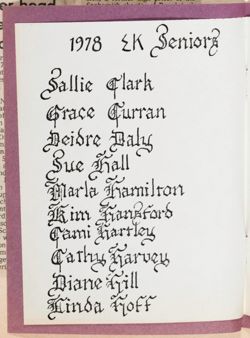 1978 ΣK Seniors
Sallie Clark
Grace Curran
Deidre Daly
Sue Hall
Marla Hamilton
Kim Hansford
Cami Hartley
Cathy Harvey
Diane Hill
Linda Hoff